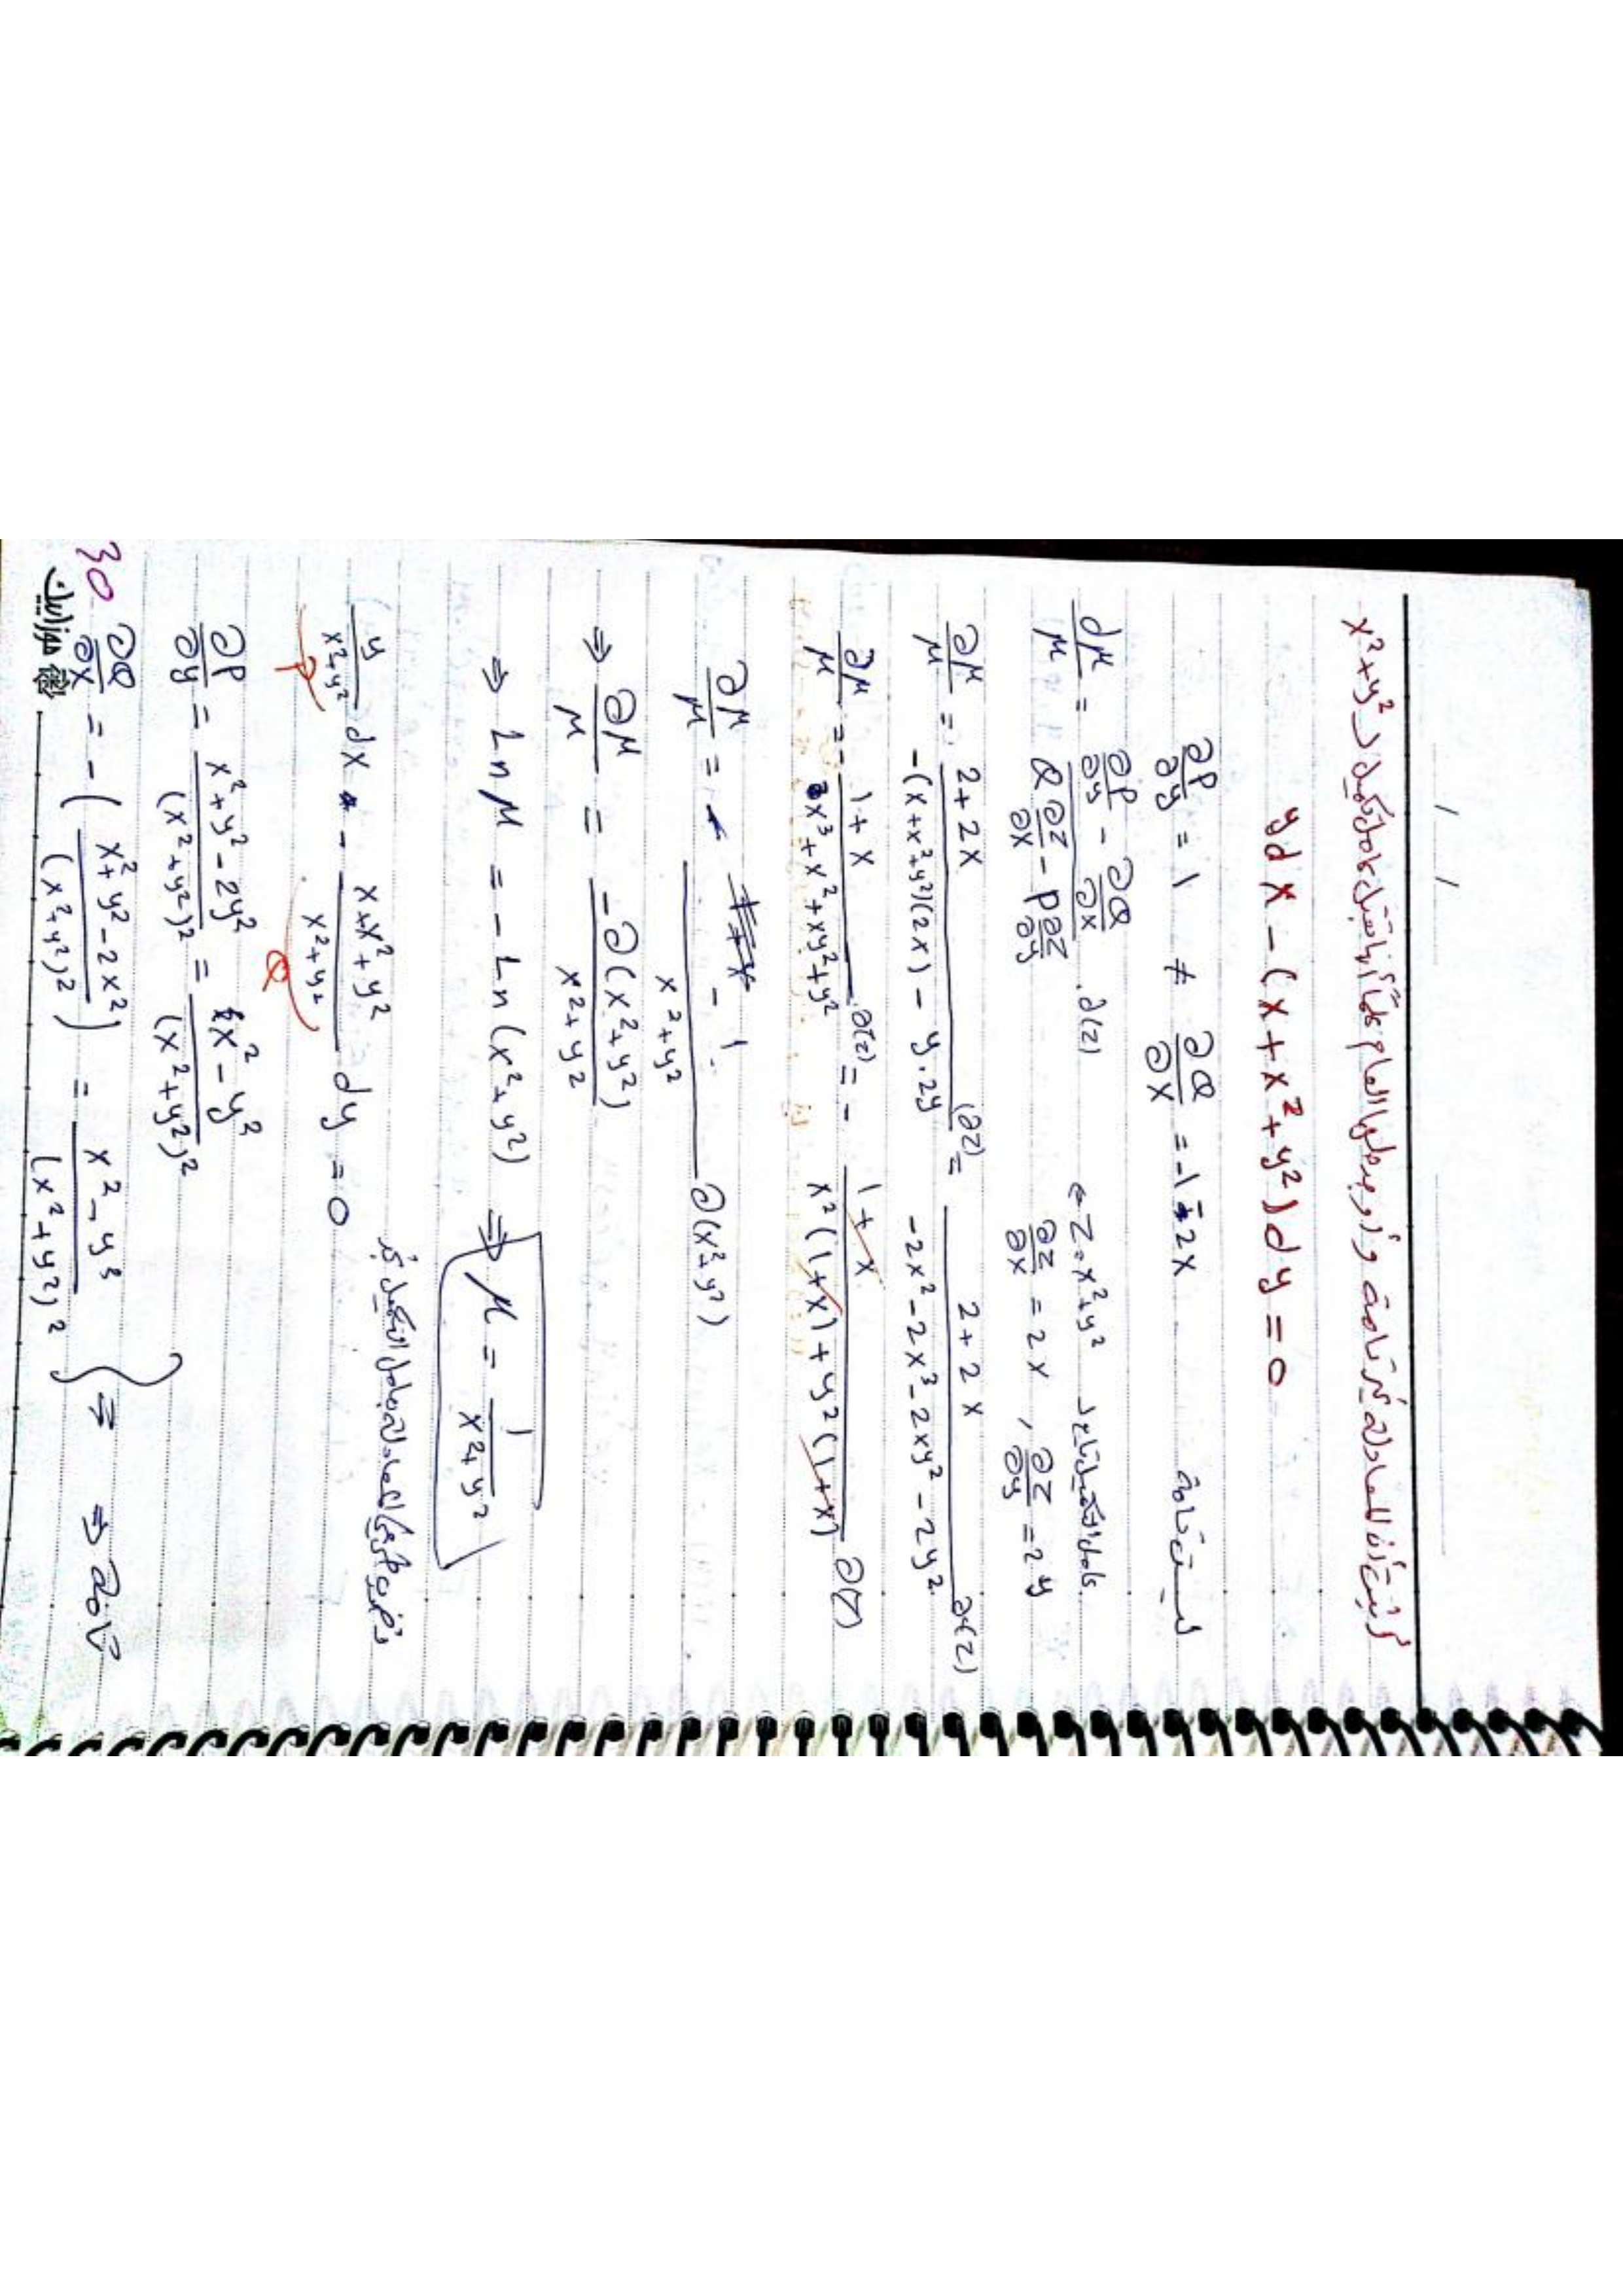 أثبت أن المعادلة غير تامة وأوجد حلها العام علماً أنها تقبل عامل تكميل لـ x²+y²
y dx - (x + x² + y²) dy = 0
∂P/∂y = 1 ≠ ∂Q/∂x = -1 - 2x ليست تامة
dμ/μ = (∂P/∂y - ∂Q/∂x)/(Q ∂z/∂x - P ∂z/∂y) . ∂(z) ← z = x²+y² عامل التكميل تابع لـ
∂z/∂x = 2x , ∂z/∂y = 2y
∂μ/μ = (2+2x)/(-(x+x²+y²)(2x) - y.2y) (∂z) = (2+2x)/(-2x² - 2x³ - 2xy² - 2y²) ∂(z)
∂μ/μ = - (1+x)/(x³+x²+xy²+y²) ∂(z) = - (1+x)/(x²(1+x)+y²(1+x)) ∂(z)
∂μ/μ = -1/(x²+y²) ∂(x²+y²)
⇒ ∂μ/μ = -∂(x²+y²)/(x²+y²)
⇒ Ln μ = - Ln (x²+y²) ⇒ μ = 1/(x²+y²)
نضرب طرفي المعادلة بعامل التكميل
y/(x²+y²) dx - (x+x²+y²)/(x²+y²) dy = 0
P Q
∂P/∂y = (x²+y²-2y²)/(x²+y²)² = (x²-y²)/(x²+y²)²
∂Q/∂x = -((x²+y²-2x²)/(x²+y²)²) = (x²-y²)/(x²+y²)² } ⇒ ⇒ تامة
30
موزاييك